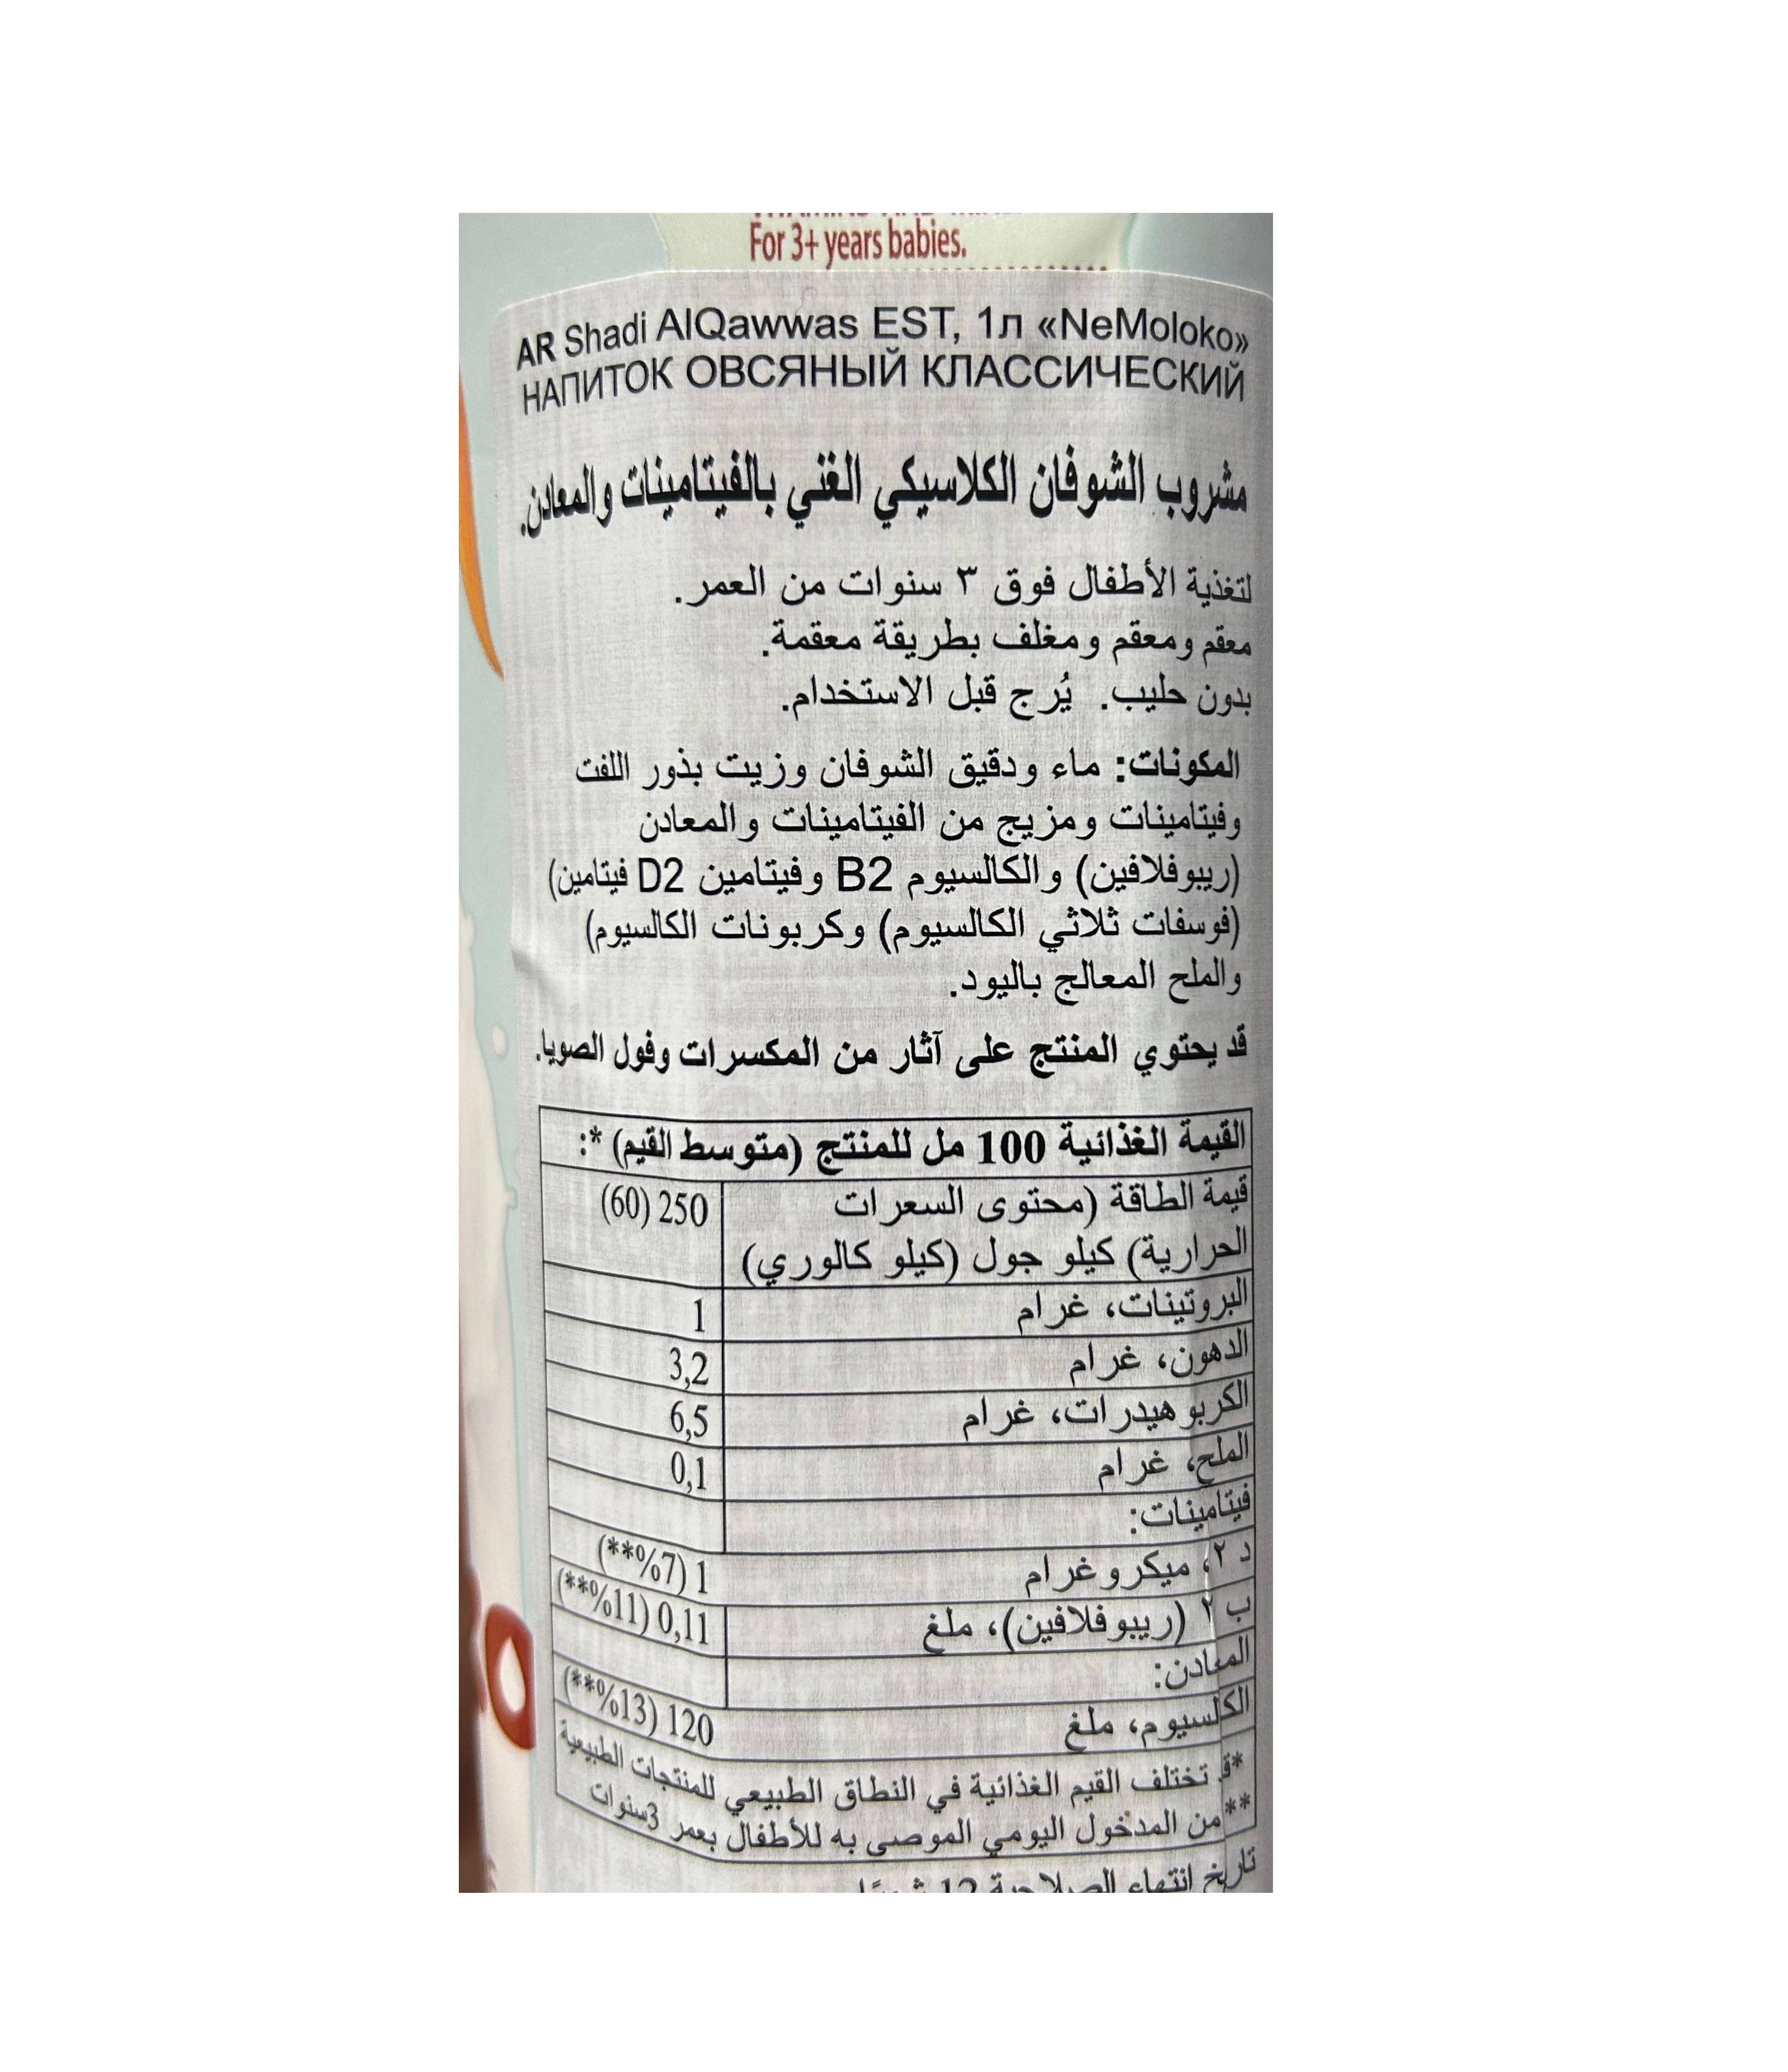 For 3+ years babies.
AR Shadi AlQawwas EST, 1л «NeMoloko»
НАПИТОК ОВСЯНЫЙ КЛАССИЧЕСКИЙ
مشروب الشوفان الكلاسيكي الغني بالفيتامينات والمعادن.
لتغذية الأطفال فوق ٣ سنوات من العمر.
معقم ومعقم ومغلف بطريقة معقمة.
بدون حليب. يُرج قبل الاستخدام.
المكونات: ماء ودقيق الشوفان وزيت بذور اللفت
وفيتامينات ومزيج من الفيتامينات والمعادن
(ريبوفلافين) والكالسيوم B2 وفيتامين D2 فيتامين)
(فوسفات ثلاثي الكالسيوم) وكربونات الكالسيوم)
والملح المعالج باليود.
قد يحتوي المنتج على آثار من المكسرات وفول الصويا.
القيمة الغذائية 100 مل للمنتج (متوسط القيم) *:
قيمة الطاقة (محتوى السعرات 250 (60)
الحرارية) كيلو جول (كيلو كالوري)
البروتينات، غرام 1
الدهون، غرام 3,2
الكربوهيدرات، غرام 6,5
الملح، غرام 0,1
فيتامينات:
د ٢، ميكروغرام 1 (7%**)
ب ٢ (ريبوفلافين)، ملغ 0,11 (11%**)
المعادن:
الكالسيوم، ملغ 120 (13%**)
*قد تختلف القيم الغذائية في النطاق الطبيعي للمنتجات الطبيعية
**من المدخول اليومي الموصى به للأطفال بعمر 3سنوات
تاريخ انتهاء الصلاحية 12 شهرًا